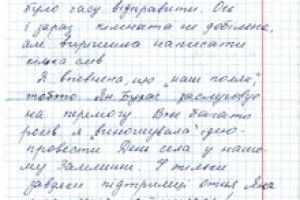 було часу відправити. Ось
і зараз кімната не добілена,
але вирішила написати
кілька слів
Я впевнена, що "наш поляк"
тобто Ян Бурас заслуговує
на перемогу. Вже багато
років я "виношувала" ідею
провести День села у нашо-
му Замлинні. І тільки
завдяки підтримці отця Яна